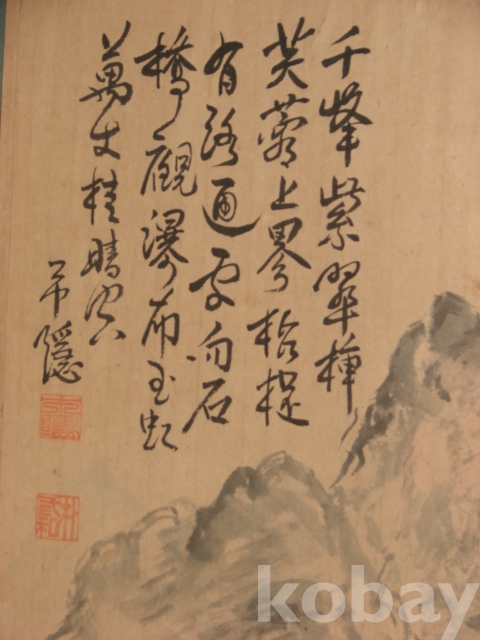 千峯紫翠插
芙蓉上界招提
有路通向石
橋觀瀑布玉虹
萬丈挂晴空
隱
kobay